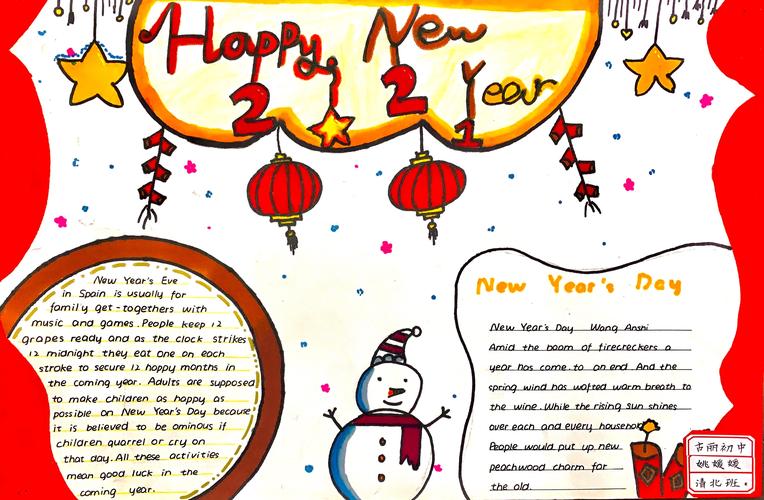 Happy New
Year
2 2 1
New Year's Eve
in Spain is usually for
family get-togethers with
music and games. People keep 12
grapes ready and as the clock strikes
12 midnight they eat one on each
stroke to secure 12 happy months in
the coming year. Adults are supposed
to make children as happy as
possible on New Year's Day because
it is believed to be ominous if
children quarrel or cry on
that day. All these activities
mean good luck in the
coming year.
New Year's Day
New Year's Day Wang Anshi
Amid the boom of firecreckers a
year has come to an end. And the
spring wind has wafted warm breath to
the wine. While the rising sun shines
over each and every househol
People would put up new
peachwood charm for
the old.
古丽初中
姚媛媛
清北班.